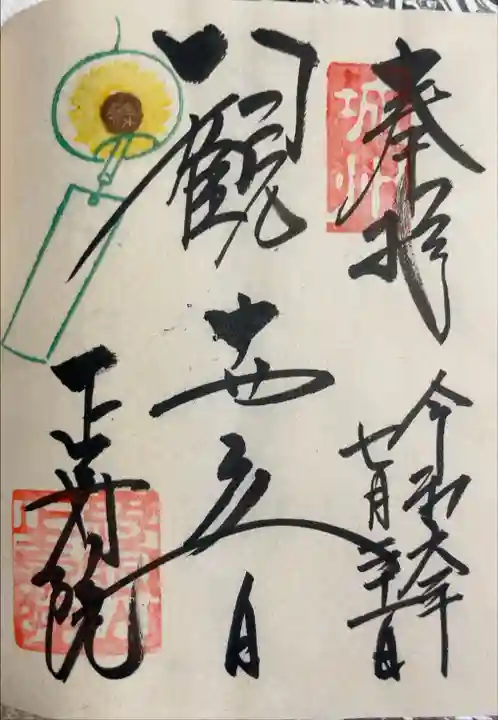 奉拝
城州
令和六年
七月二十一日
観世音
正寿院